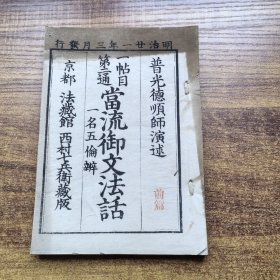 明治廿一年三月發行
普光德順師演述
前篇
一帖目
第三通
當流御文法話
一名五倫辨
京都 法藏館 西村七兵衛藏版